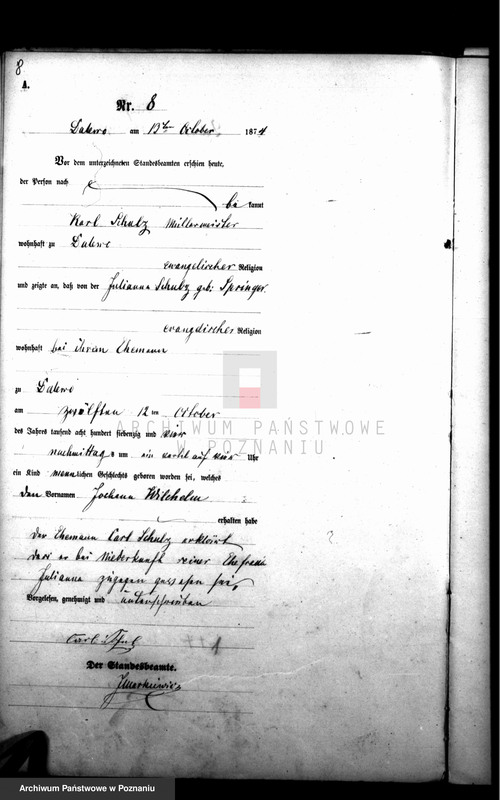 8
A.
Nr. 8
am 13ten October 1874
Vor dem unterzeichneten Standesbeamten erschien heute,
der Person nach
be kannt
Karl Schulz Müllermeister
wohnhaft zu
evangelischer Religion
und zeigte an, daß von der Julianna Schulz geb: Springer
evangelischer Religion
wohnhaft bei ihrem Ehemann
zu
am zwölften 12 ten October
des Jahrs tausend acht hundert siebenzig und vier
nachmittags um ein viertel auf vier Uhr
ein Kind männlichen Geschlechts geboren worden sei, welches
den Vornamen Johann Wilhelm
erhalten habe
Der Ehemann Carl Schulz erklärt
das er bei Niederkunft seiner Ehefrau
Julianna zugegen gewesen sei,
Vorgelesen, genehmigt und unterschrieben
Carl
Der Standesbeamte.
JMarkiewicz
ARCHIWUM PAŃSTWOWE
W POZNANIU
Archiwum Państwowe w Poznaniu